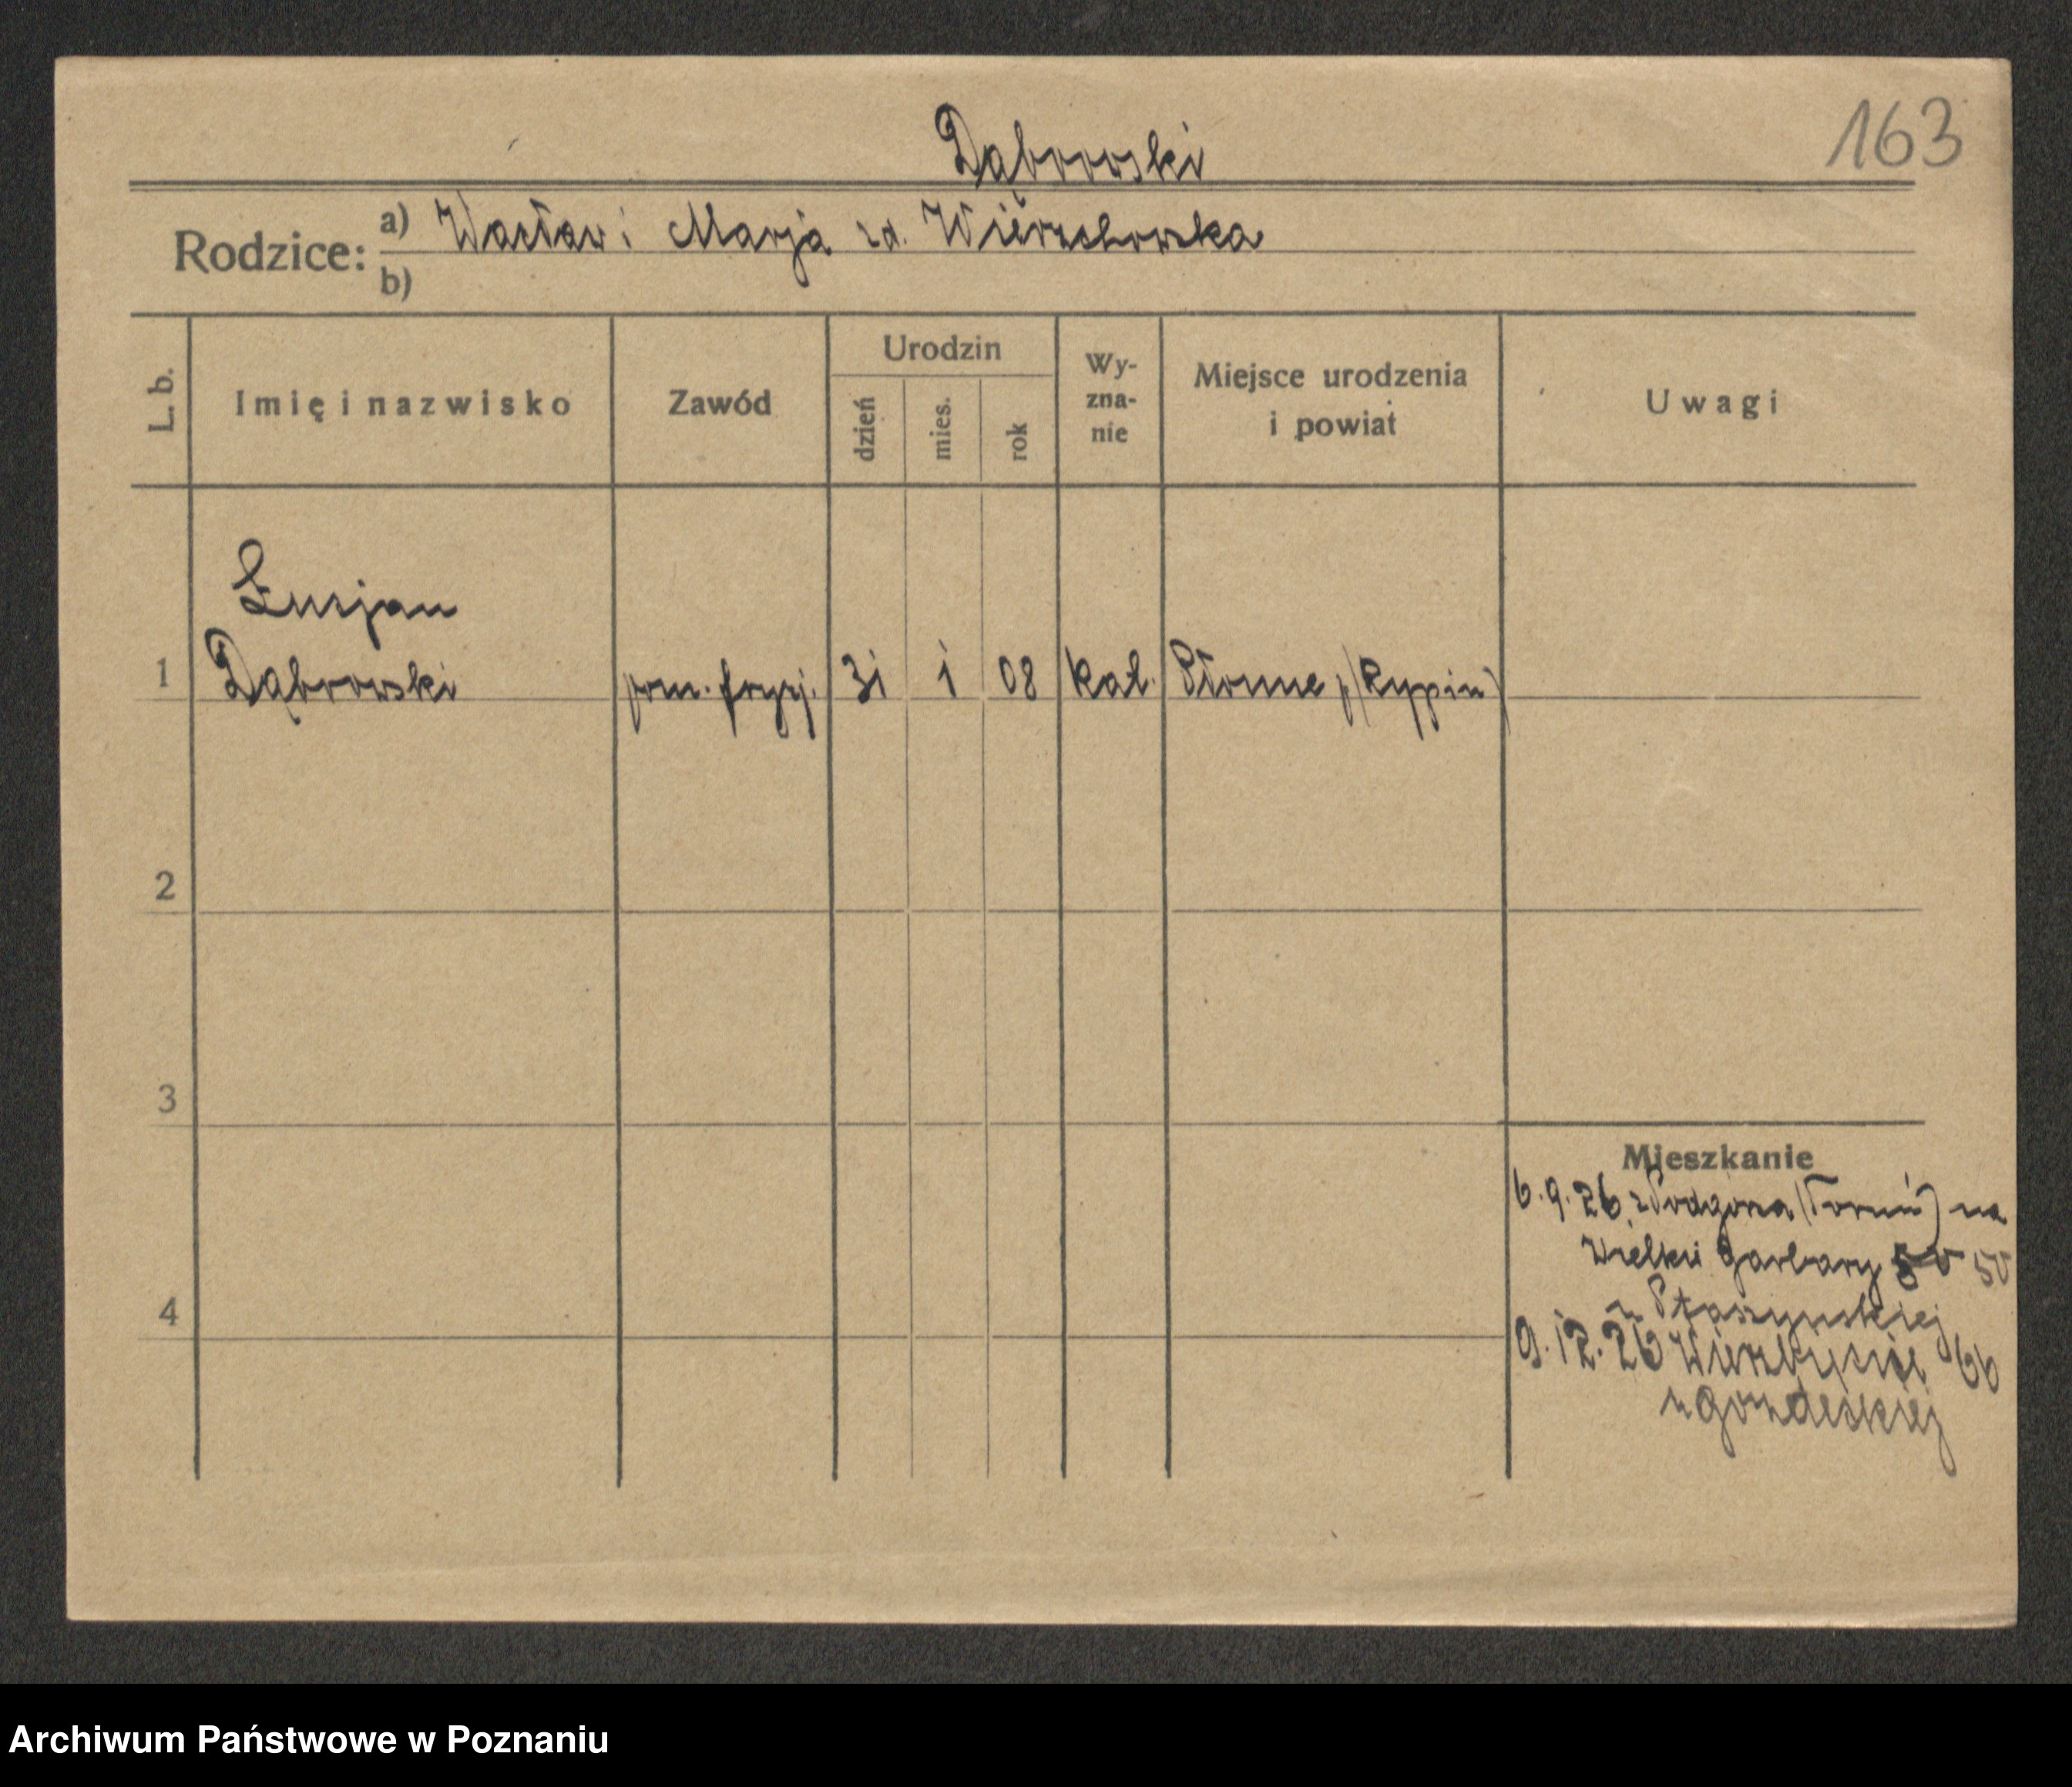 163
Dąbrowski
Rodzice: a) Wacław i Marja zd. Wierzchowska
b)
L. b.
Imię i nazwisko
Zawód
Urodzin
dzień
mies.
rok
Wy-
zna-
nie
Miejsce urodzenia
i powiat
Uwagi
Lucjan
1 Dąbrowski pom. fryzj. 31 1 08 kat. Płonne p/(Rypin)
2
3
4
Mieszkanie
6.9.26. z Podgórza (Toruń) na
Wielkie Garbary 50 50
u Staszyńskiej
9.12.26 Wierzbięcice 66
u
Archiwum Państwowe w Poznaniu